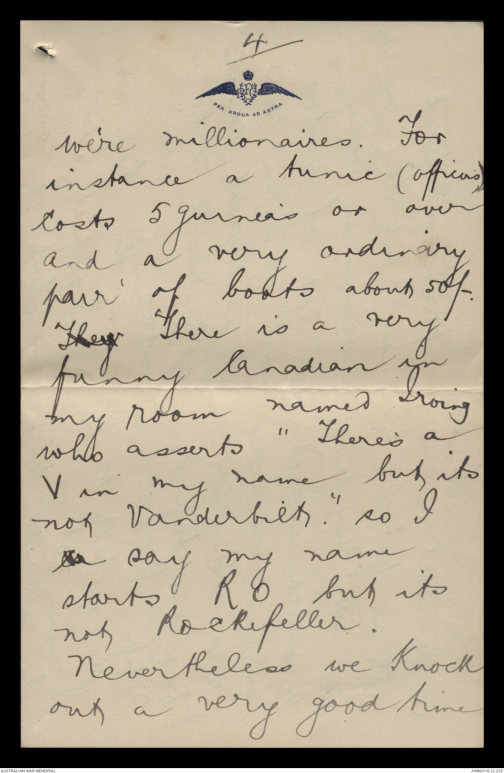 4
PER ARDUA AD ASTRA
we're millionaires. For
instance a tunic (officers)
Costs 5 guineas or over
and a very ordinary
pair of boots about 50/-.
They There is a very
funny Canadian in
my room named Irving
who asserts "There's a
V in my name but its
not Vanderbilt." so I
say my name
starts RO but its
not Rockefeller.
Nevertheless we Knock
out a very good time
AUSTRALIAN WAR MEMORIAL